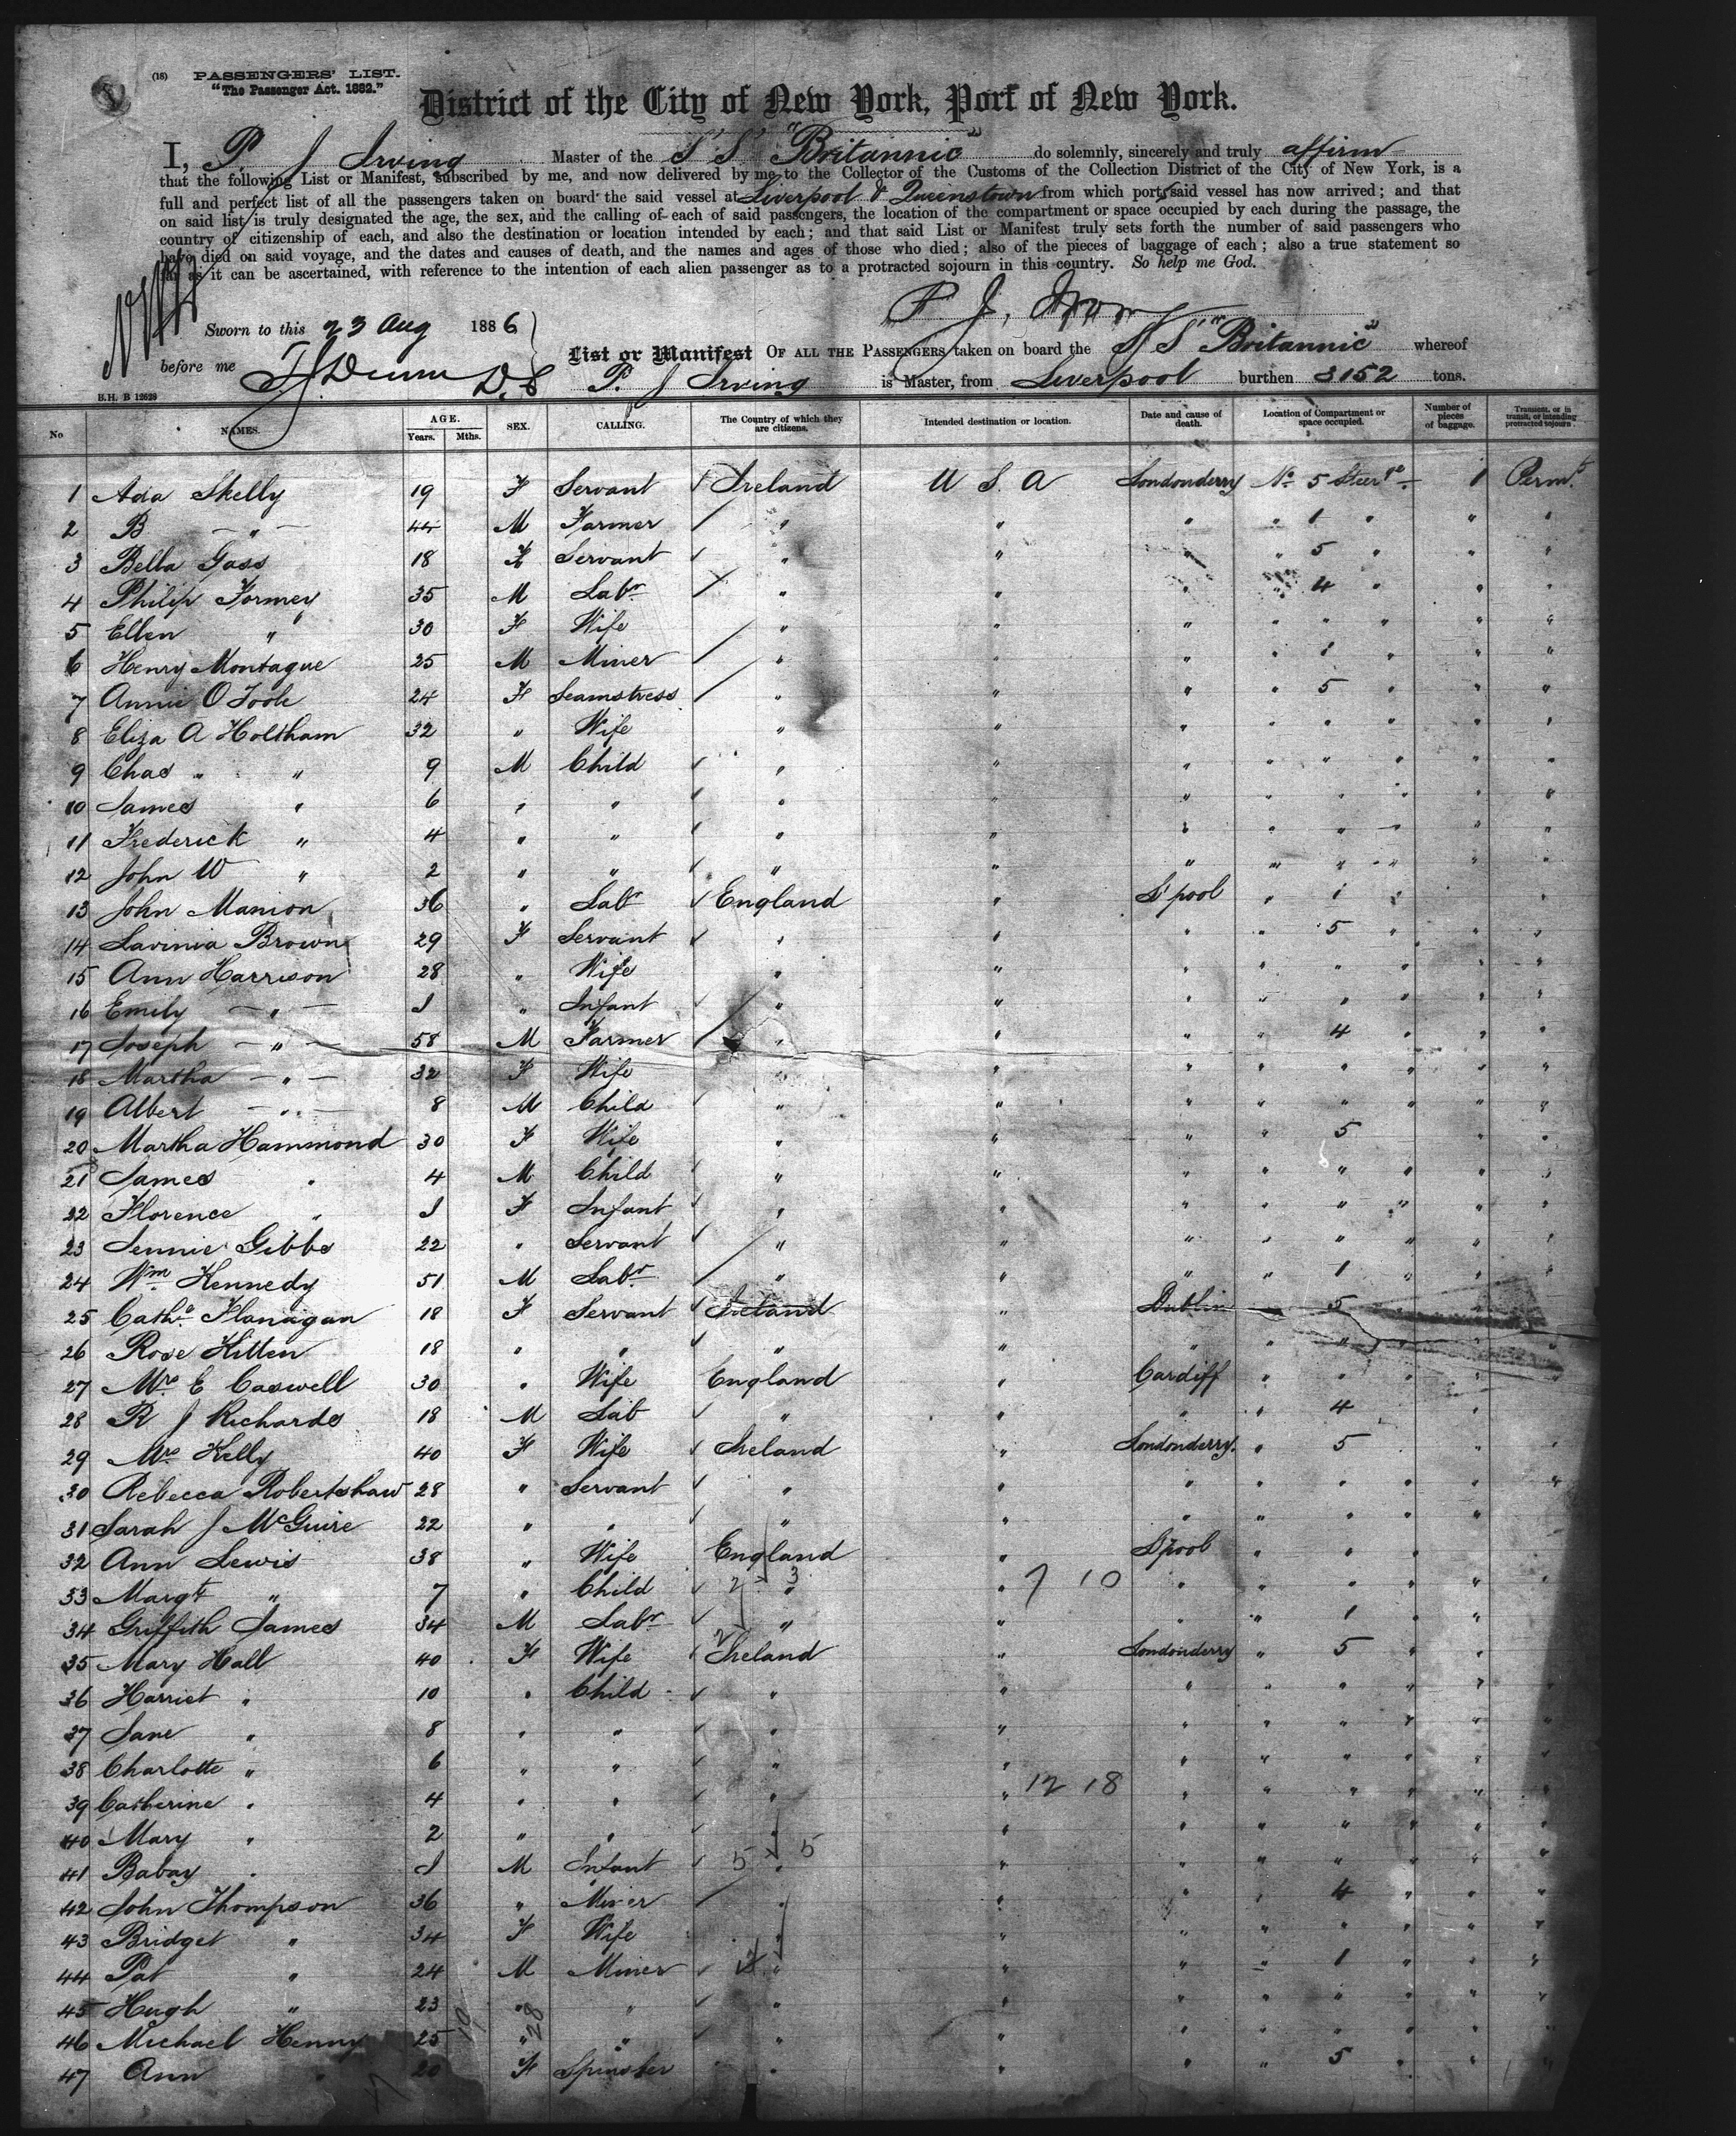 (18) PASSENGERS' LIST.
"The Passenger Act. 1882."
District of the City of New York, Port of New York.
I, P. J Irving Master of the S S "Britannic" do solemnly, sincerely and truly affirm
that the following List or Manifest, subscribed by me, and now delivered by me to the Collector of the Customs of the Collection District of the City of New York, is a
full and perfect list of all the passengers taken on board the said vessel at Liverpool & Queenstown from which ports said vessel has now arrived; and that
on said list is truly designated the age, the sex, and the calling of each of said passengers, the location of the compartment or space occupied by each during the passage, the
country of citizenship of each, and also the destination or location intended by each; and that said List or Manifest truly sets forth the number of said passengers who
have died on said voyage, and the dates and causes of death, and the names and ages of those who died; also of the pieces of baggage of each; also a true statement so
far as it can be ascertained, with reference to the intention of each alien passenger as to a protracted sojourn in this country. So help me God.
P. J. Irving
Sworn to this 23 Aug 1886
before me
List or Manifest OF ALL THE PASSENGERS taken on board the S S "Britannic" whereof
P. J Irving is Master, from Liverpool burthen 3152 tons.
B.H. B 12628
No NAMES. AGE. Years. Mths. SEX. CALLING. The Country of which they are citizens. Intended destination or location. Date and cause of death. Location of Compartment or space occupied. Number of pieces of baggage. Transient, or in transit, or intending protracted sojourn.
1 Ada Skelly 19 F Servant Ireland U S. A Londonderry No 5 Steerge 1 Permt
2 B " 44 M Farmer " " " " 1 " " "
3 Bella Gass 18 F Servant " " " " 5 " " "
4 Philip Formey 35 M Labr " " " " 4 " " "
5 Ellen " 30 F Wife " " " " " " " "
6 Henry Montague 25 M Miner " " " " 1 " " "
7 Annie O Toole 24 F Seamstress " " " " 5 " " "
8 Eliza A Holtham 32 " Wife " " " " " " " "
9 Chas " " 9 M Child " " " " " " " "
10 James " 6 " " " " " " " " " "
11 Frederick " 4 " " " " " " " " " "
12 John W " 2 " " " " " " " " " "
13 John Manion 36 " Labr England " L'pool " 1 " " "
14 Lavinia Brown 29 F Servant " " " " 5 " " "
15 Ann Harrison 28 " Wife " " " " " " " "
16 Emily " 1 " Infant " " " " " " " "
17 Joseph " 58 M Farmer " " " " 4 " " "
18 Martha " 32 F Wife " " " " " " " "
19 Albert " 8 M Child " " " " " " " "
20 Martha Hammond 30 F Wife " " " " 5 " "
21 James " 4 M Child " " " " " " " "
22 Florence " 1 F Infant " " " " " " " "
23 Jennie Gibbs 22 " Servant " " " " " " " "
24 Wm Kennedy 51 M Labr " " " " 1 " " "
25 Cathe Flanagan 18 F Servant Ireland " Dublin 5
26 Rose Kitten 18 " " " " " " "
27 Mrs E Caswell 30 " Wife England " Cardiff " " " " "
28 R J Richards 18 M Lab " " " " 4 "
29 Mrs Kelly 40 F Wife Ireland " Londonderry. " 5 " "
30 Rebecca Robertshaw 28 " Servant " " " " " " " "
31 Sarah J McGuire 22 " " " " " " " " "
32 Ann Lewis 38 " Wife England " L'pool " " "
33 Margt " 7 " Child 2 " 3 " 7 10 " " " " " "
34 Griffith James 34 M Labr " " " " 1 " "
35 Mary Hall 40 F Wife Ireland " Londonderry " 5 " "
36 Harriet " 10 " Child " " " " " " " "
37 Jane " 8 " " " " " " " " " "
38 Charlotte " 6 " " " " " " " " " "
39 Catherine " 4 " " " " 12 18 " " " " " "
40 Mary " 2 " " " " " " " " " "
41 Babay " 1 M Infant 5 " 5 " " " " " " "
42 John Thompson 36 " Miner " " " " 4 " " "
43 Bridget " 34 F Wife " " " " " " " "
44 Pat " 24 M Miner " " " " 1 " " "
45 Hugh " 23 " " " " " " " " " "
46 Michael Henny 25 " 28 " " " " " " " " "
47 Ann " 20 F Spinster " " " " 5 " " "